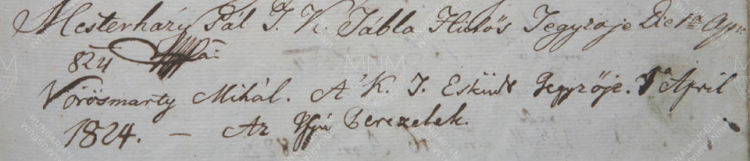 Mesterházi Pál T. K. Tábla Hütös Jegyzője Die 1a Apr.
824
Vörösmarty Mihál. A' K. T. Esküdt Jegyzője. 1a April
1824. — Az Ifjú Perczelek.